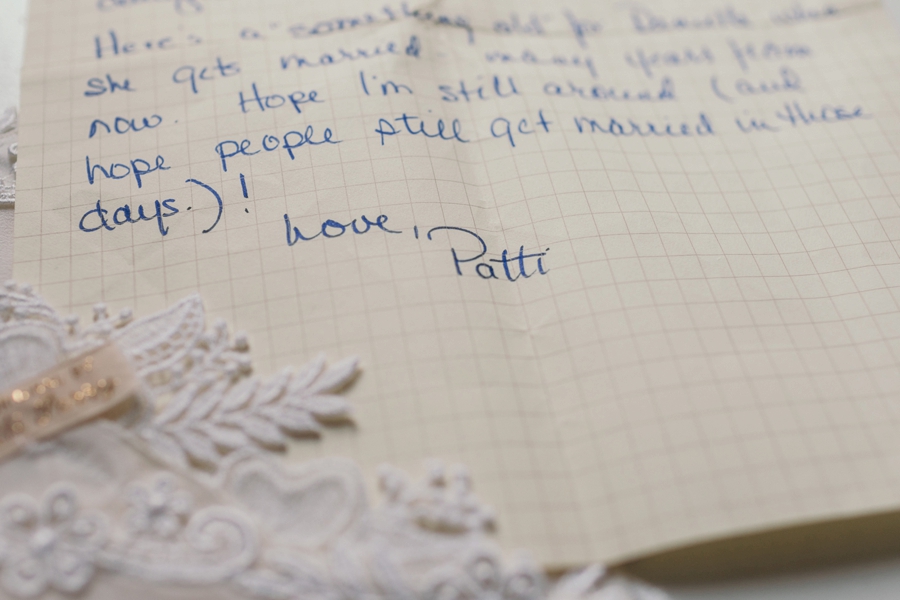 Here's a "something old" for Danielle when
she gets married many years from
now. Hope I'm still around (and
hope people still get married in those
days.)!
Love,
Patti